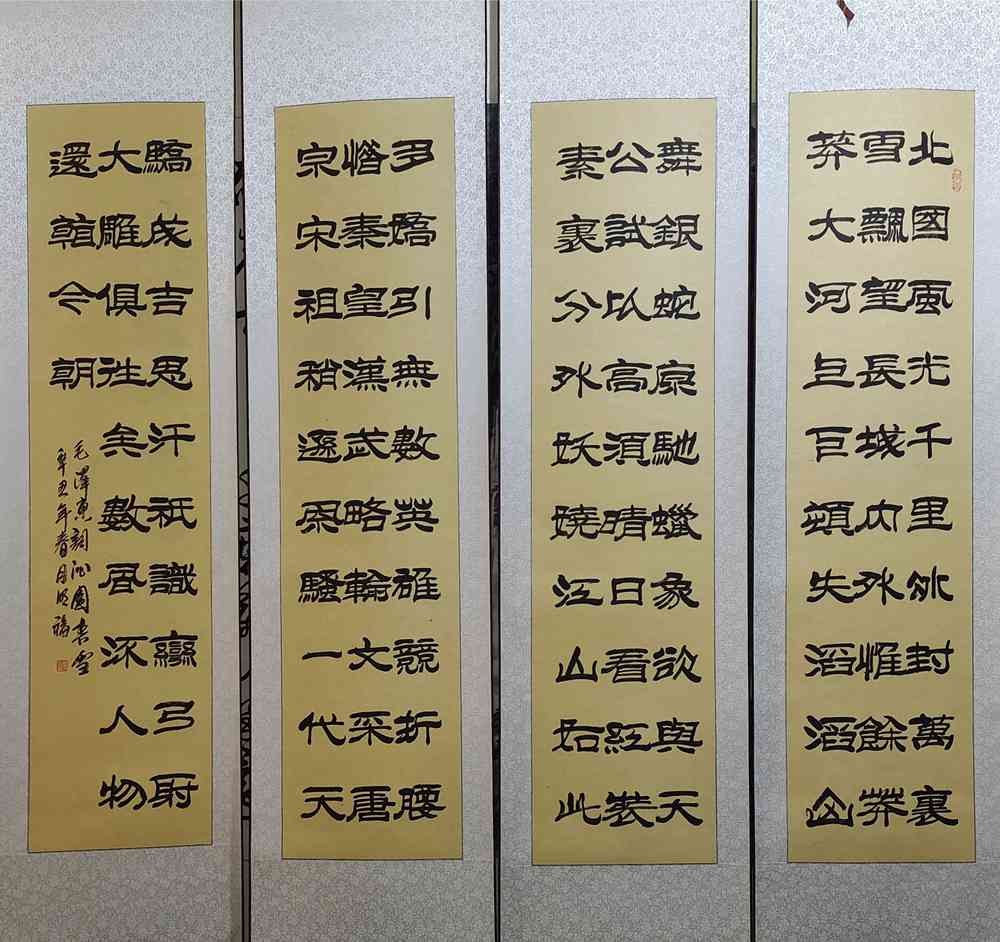 北國風光千里冰封萬裏
雪飄望長城內外惟餘莽
莽大河上下頓失滔滔山
舞銀蛇原馳蠟象欲與天
公試比高須晴日看紅裝
素裹分外妖嬈江山如此
多嬌引無數英雄競折腰
惜秦皇漢武略輸文采唐
宗宋祖稍遜風騷一代天
驕成吉思汗祇識彎弓射
大雕俱往矣數風流人物
還看今朝
毛澤東詞沁園春雪
辛丑年春月明福